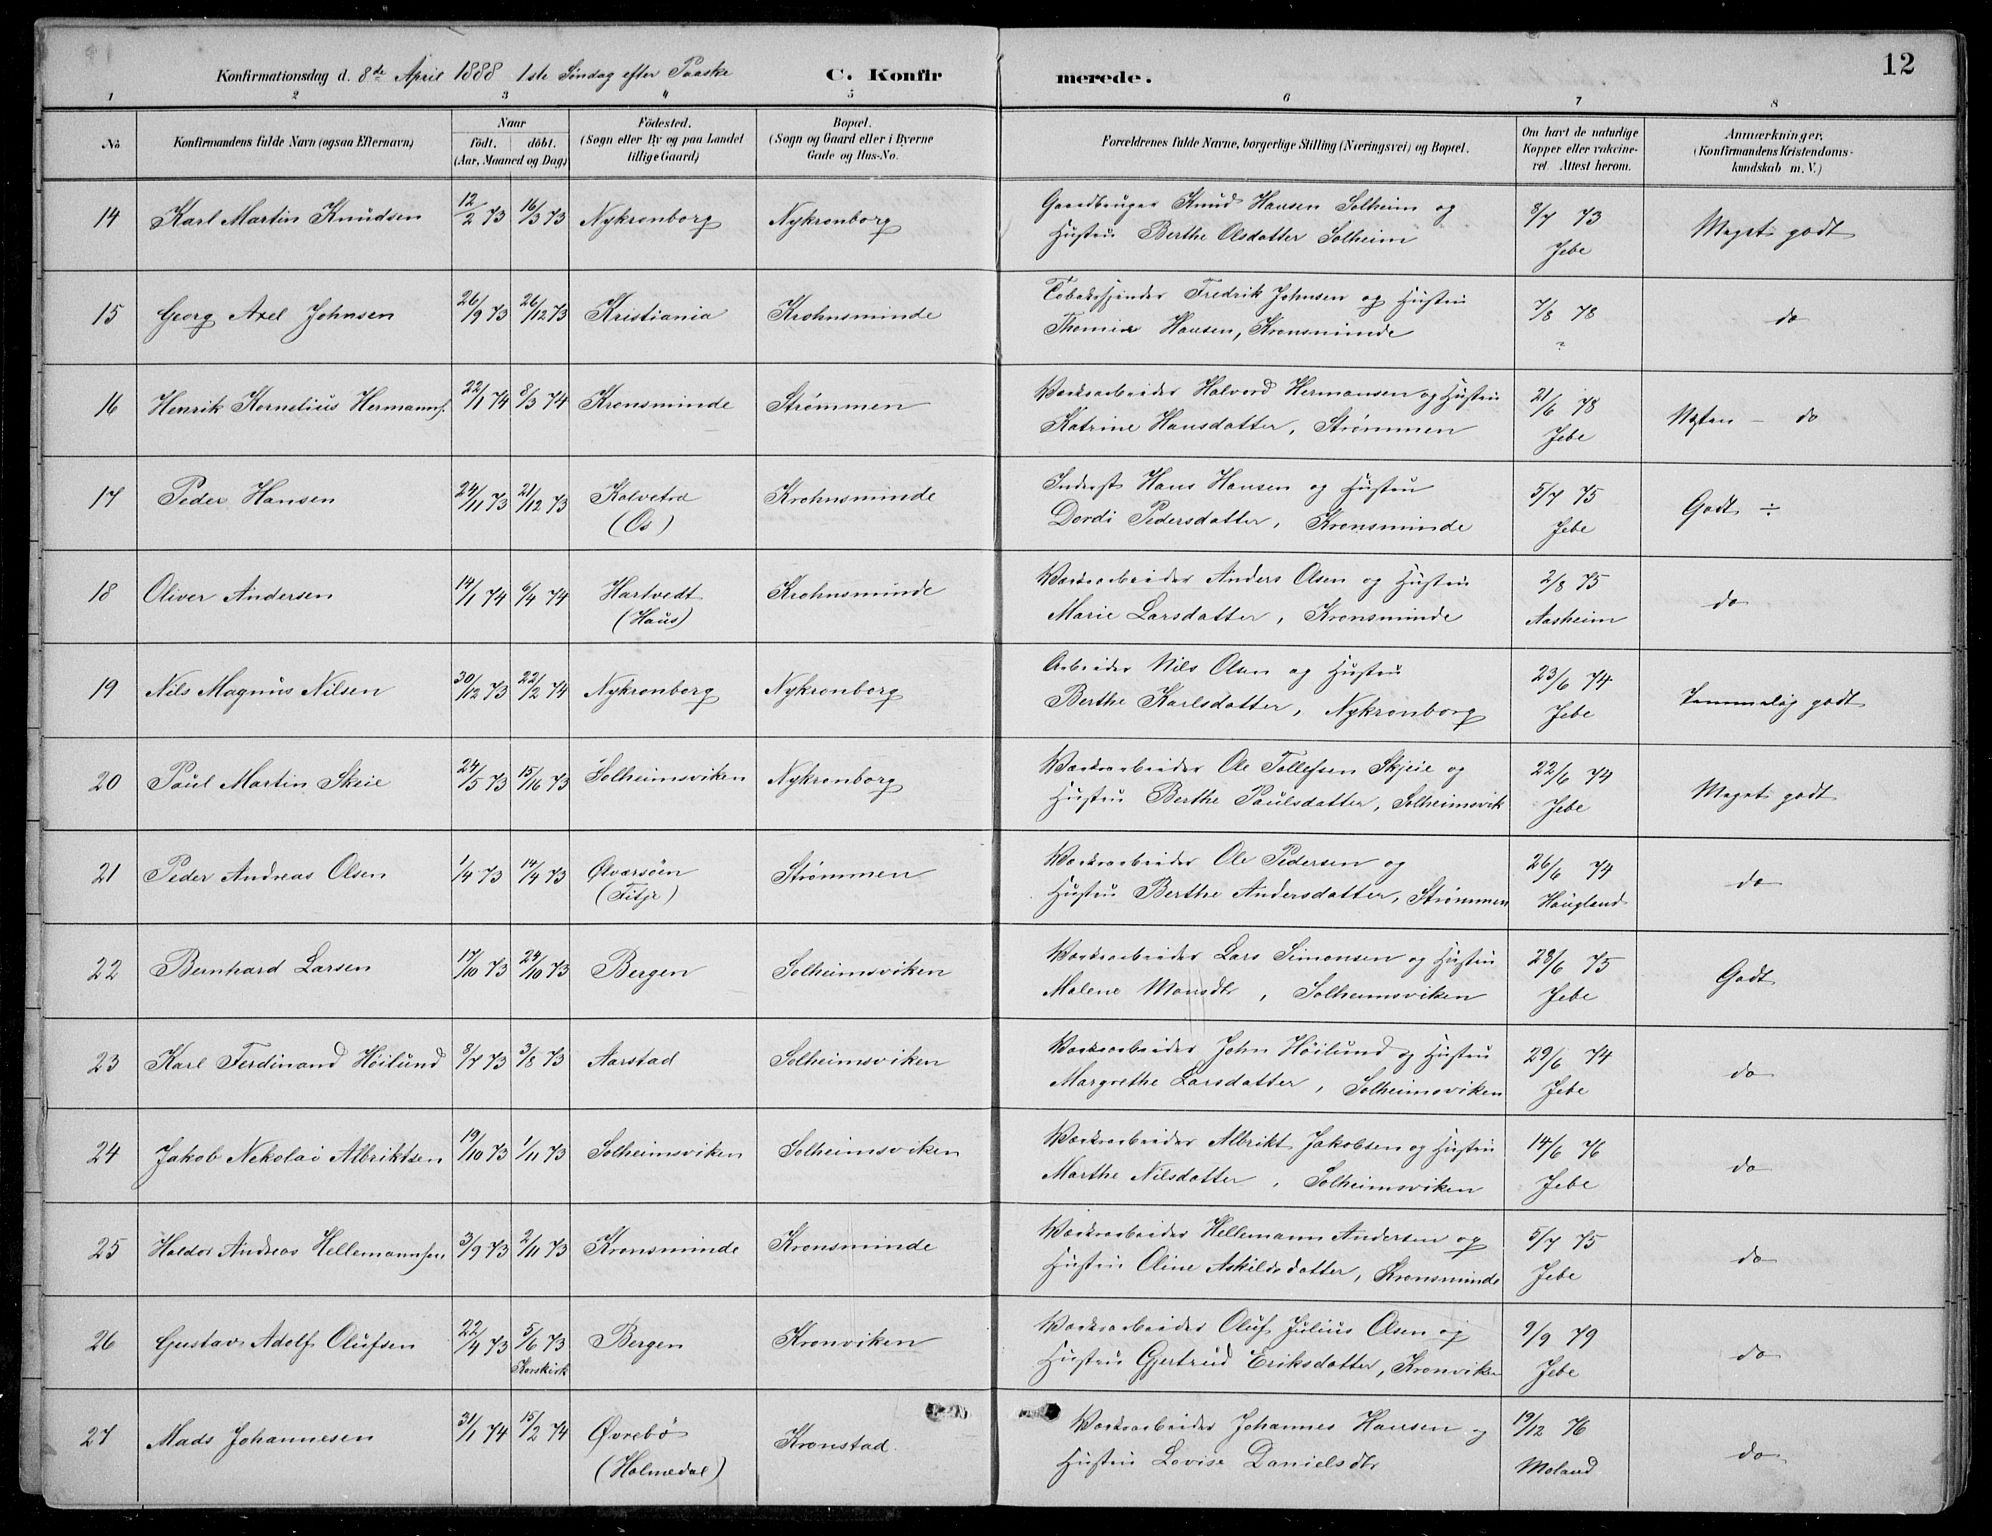 12
Konfirmationsdag d. 8de April 1888 1ste Søndag efter Paaske C. Konfirmerede.
1 2 3 4 5 6 7 8
No. Konfirmandens fulde Navn (ogsaa Efternavn) Naar födt. döbt. (Aar, Maaned og Dag) Födested. (Sogn eller By og paa Landet tillige Gaard) Bopæl. (Sogn og Gaard eller i Byerne Gade og Hus-No. Forældrenes fulde Navne, borgerlige Stilling (Næringsvei) og Bopæl. Om havt de naturlige Kopper eller vakcineret. Attest herom. Anmærkninger. (Konfirmandens Kristendomskundskab m. V.)
14 Karl Martin Knudsen 12/2 73 16/3 73 Nykronborg Nykronborg Gaardbruger Knud Hansen Solheim og 8/7 73 Meget godt
Hustru Berthe Olsdatter Solheim Jebe
15 Georg Axel Johnsen 26/9 73 26/12 73 Kristiania Krohnsminde Fredrik Johnsen og Hustru 7/8 78 do
Hansen, Kronsminde ?
16 Henrik Kornelius Hermanns. 22/1 74 8/3 74 Kronsminde Strømmen Værksarbeider Halvord Hermansen og Hustru 21/6 78 Næsten – do
Katrine Hansdatter, Strømmen Jebe
17 Peder Hansen 24/11 73 21/12 73 Kalvetræ Krohnsminde Inderst Hans Hansen og Hustru 5/7 75 Godt ÷
(Os) Dordi Pedersdatter, Kronsminde Jebe
18 Oliver Andersen 14/1 74 6/4 74 Hartvedt Krohnsminde Værksarbeider Anders Olsen og Hustru 2/8 75 do
(Haus) Marie Larsdatter, Kronsminde Aasheim
19 Nils Magnus Nilsen 30/12 73 22/2 74 Nykronborg Nykronborg Arbeider Nils Olsen og Hustru 23/6 74 Temmelig godt
Berthe Karlsdatter, Nykronborg Jebe
20 Paul Martin Skeie 24/5 73 15/16 73 Solheimsviken Nykronborg Værksarbeider Ole Tollefsen Skjeie og 22/6 74 Meget godt
Hustru Berthe Paulsdatter, Solheimsvik Jebe
21 Peder Andreas Olsen 1/4 73 14/4 73 Strømmen Værksarbeider Ole Pedersen og 26/6 74 do
(Fitje) Hustru Berthe Andersdatter, Strømmen Haugland
22 Bernhard Larsen 17/10 73 24/10 73 Bergen Solheimsviken Værksarbeider Lars Simonsen og Hustru 28/6 75 Godt
Malene Monsdtr, Solheimsviken Jebe
23 Karl Ferdinand Höilund 8/7 73 3/8 73 Aarstad Solheimsviken Værksarbeider John Höilund og Hustru 29/6 74 do
Margrethe Larsdatter, Solheimsviken Jebe
24 Jakob Nekolai Albriktsen 19/10 73 1/11 73 Solheimsviken Solheimsviken Værksarbeider Albrikt Jakobsen og Hustru 14/6 76 do
Marthe Nilsdatter, Solheimsviken Jebe
25 Haldor Andreas Hellemannsen 3/9 73 2/11 73 Kronsminde Kronsminde Værksarbeider Hellemann Andersen og 5/7 75 do
Hustru Oline Askildsdatter, Kronsminde Jebe
26 Gustav Adolf Olufsen 22/4 73 5/6 73 Bergen Kronviken Værksarbeider Oluf Julius Olsen og 9/9 79 do
Korskirk Hustru Gjertrud Eriksdatter, Kronviken Jebe
27 Mads Johannesen 31/1 74 15/2 74 Øvrebö Kronstad Værksarbeider Johannes Hansen og 19/12 76 do
(Holmedal) Hustru Lovise Danielsdtr Moland